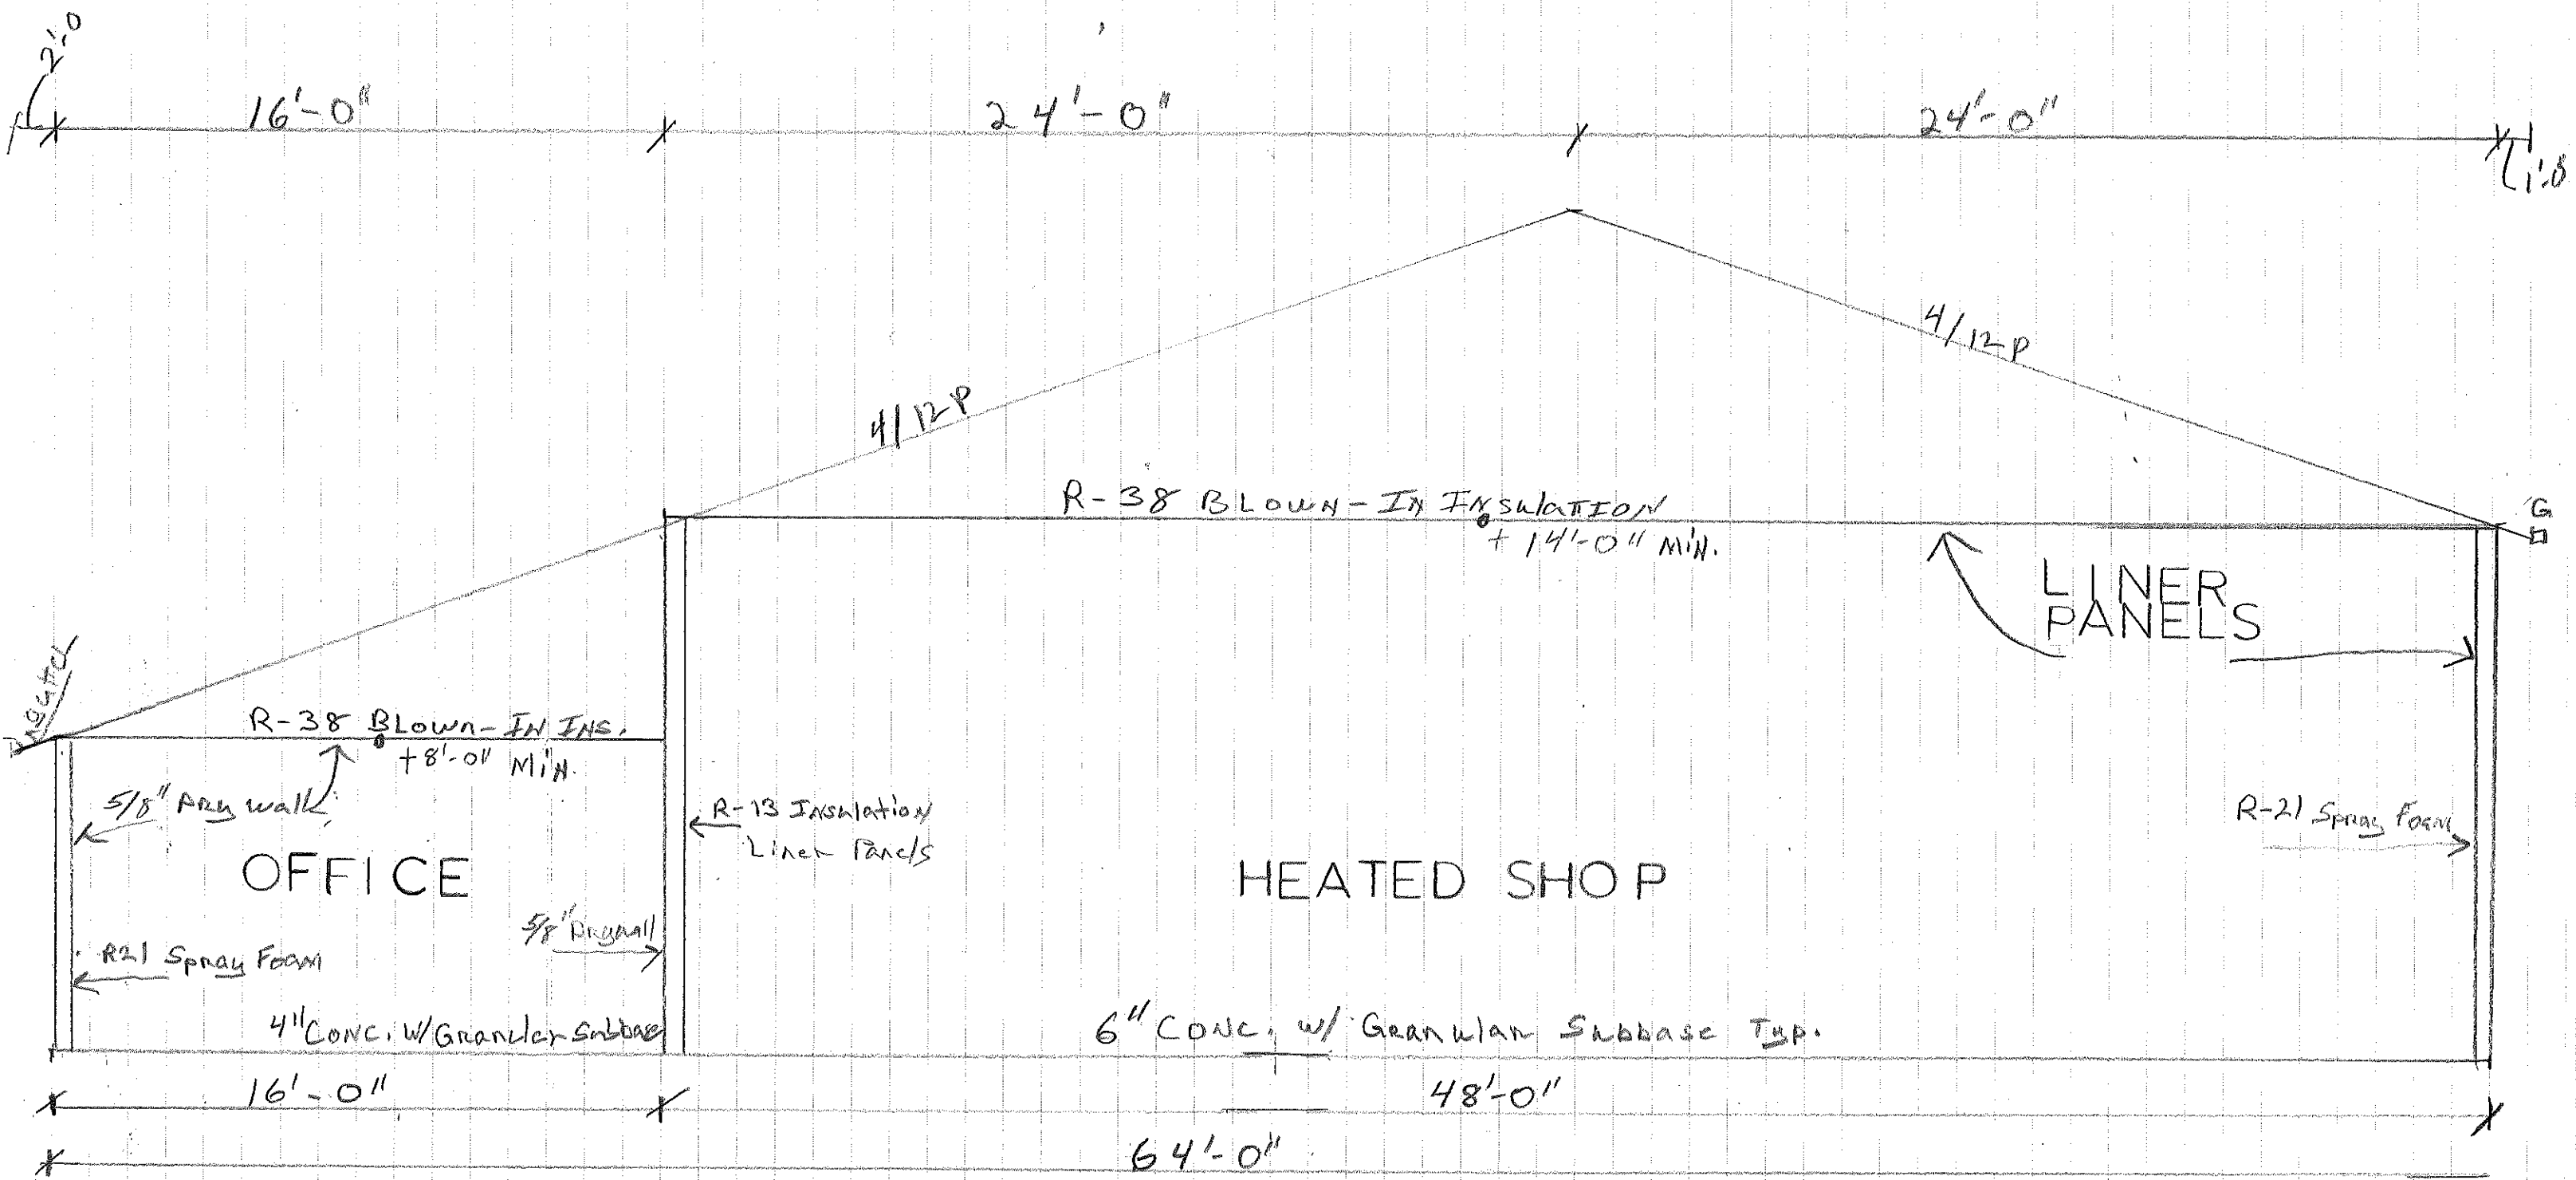 2'-0
16'-0"
24'-0"
24'-0"
4/12 P
4/12 P
R-38 BLOWN-IN INSULATION
+ 14'-0" MIN.
G
LINER
PANELS
R-38 BLOWN-IN INS.
+8'-0" MIN.
R-13 Insulation
Liner Panels
R-21 Spray Foam
OFFICE
HEATED SHOP
5/8" Drywall
R21 Spray Foam
4" CONC. W/ Granular Subbase
6" CONC. w/ Granular Subbase Typ.
16'-0"
48'-0"
64'-0"